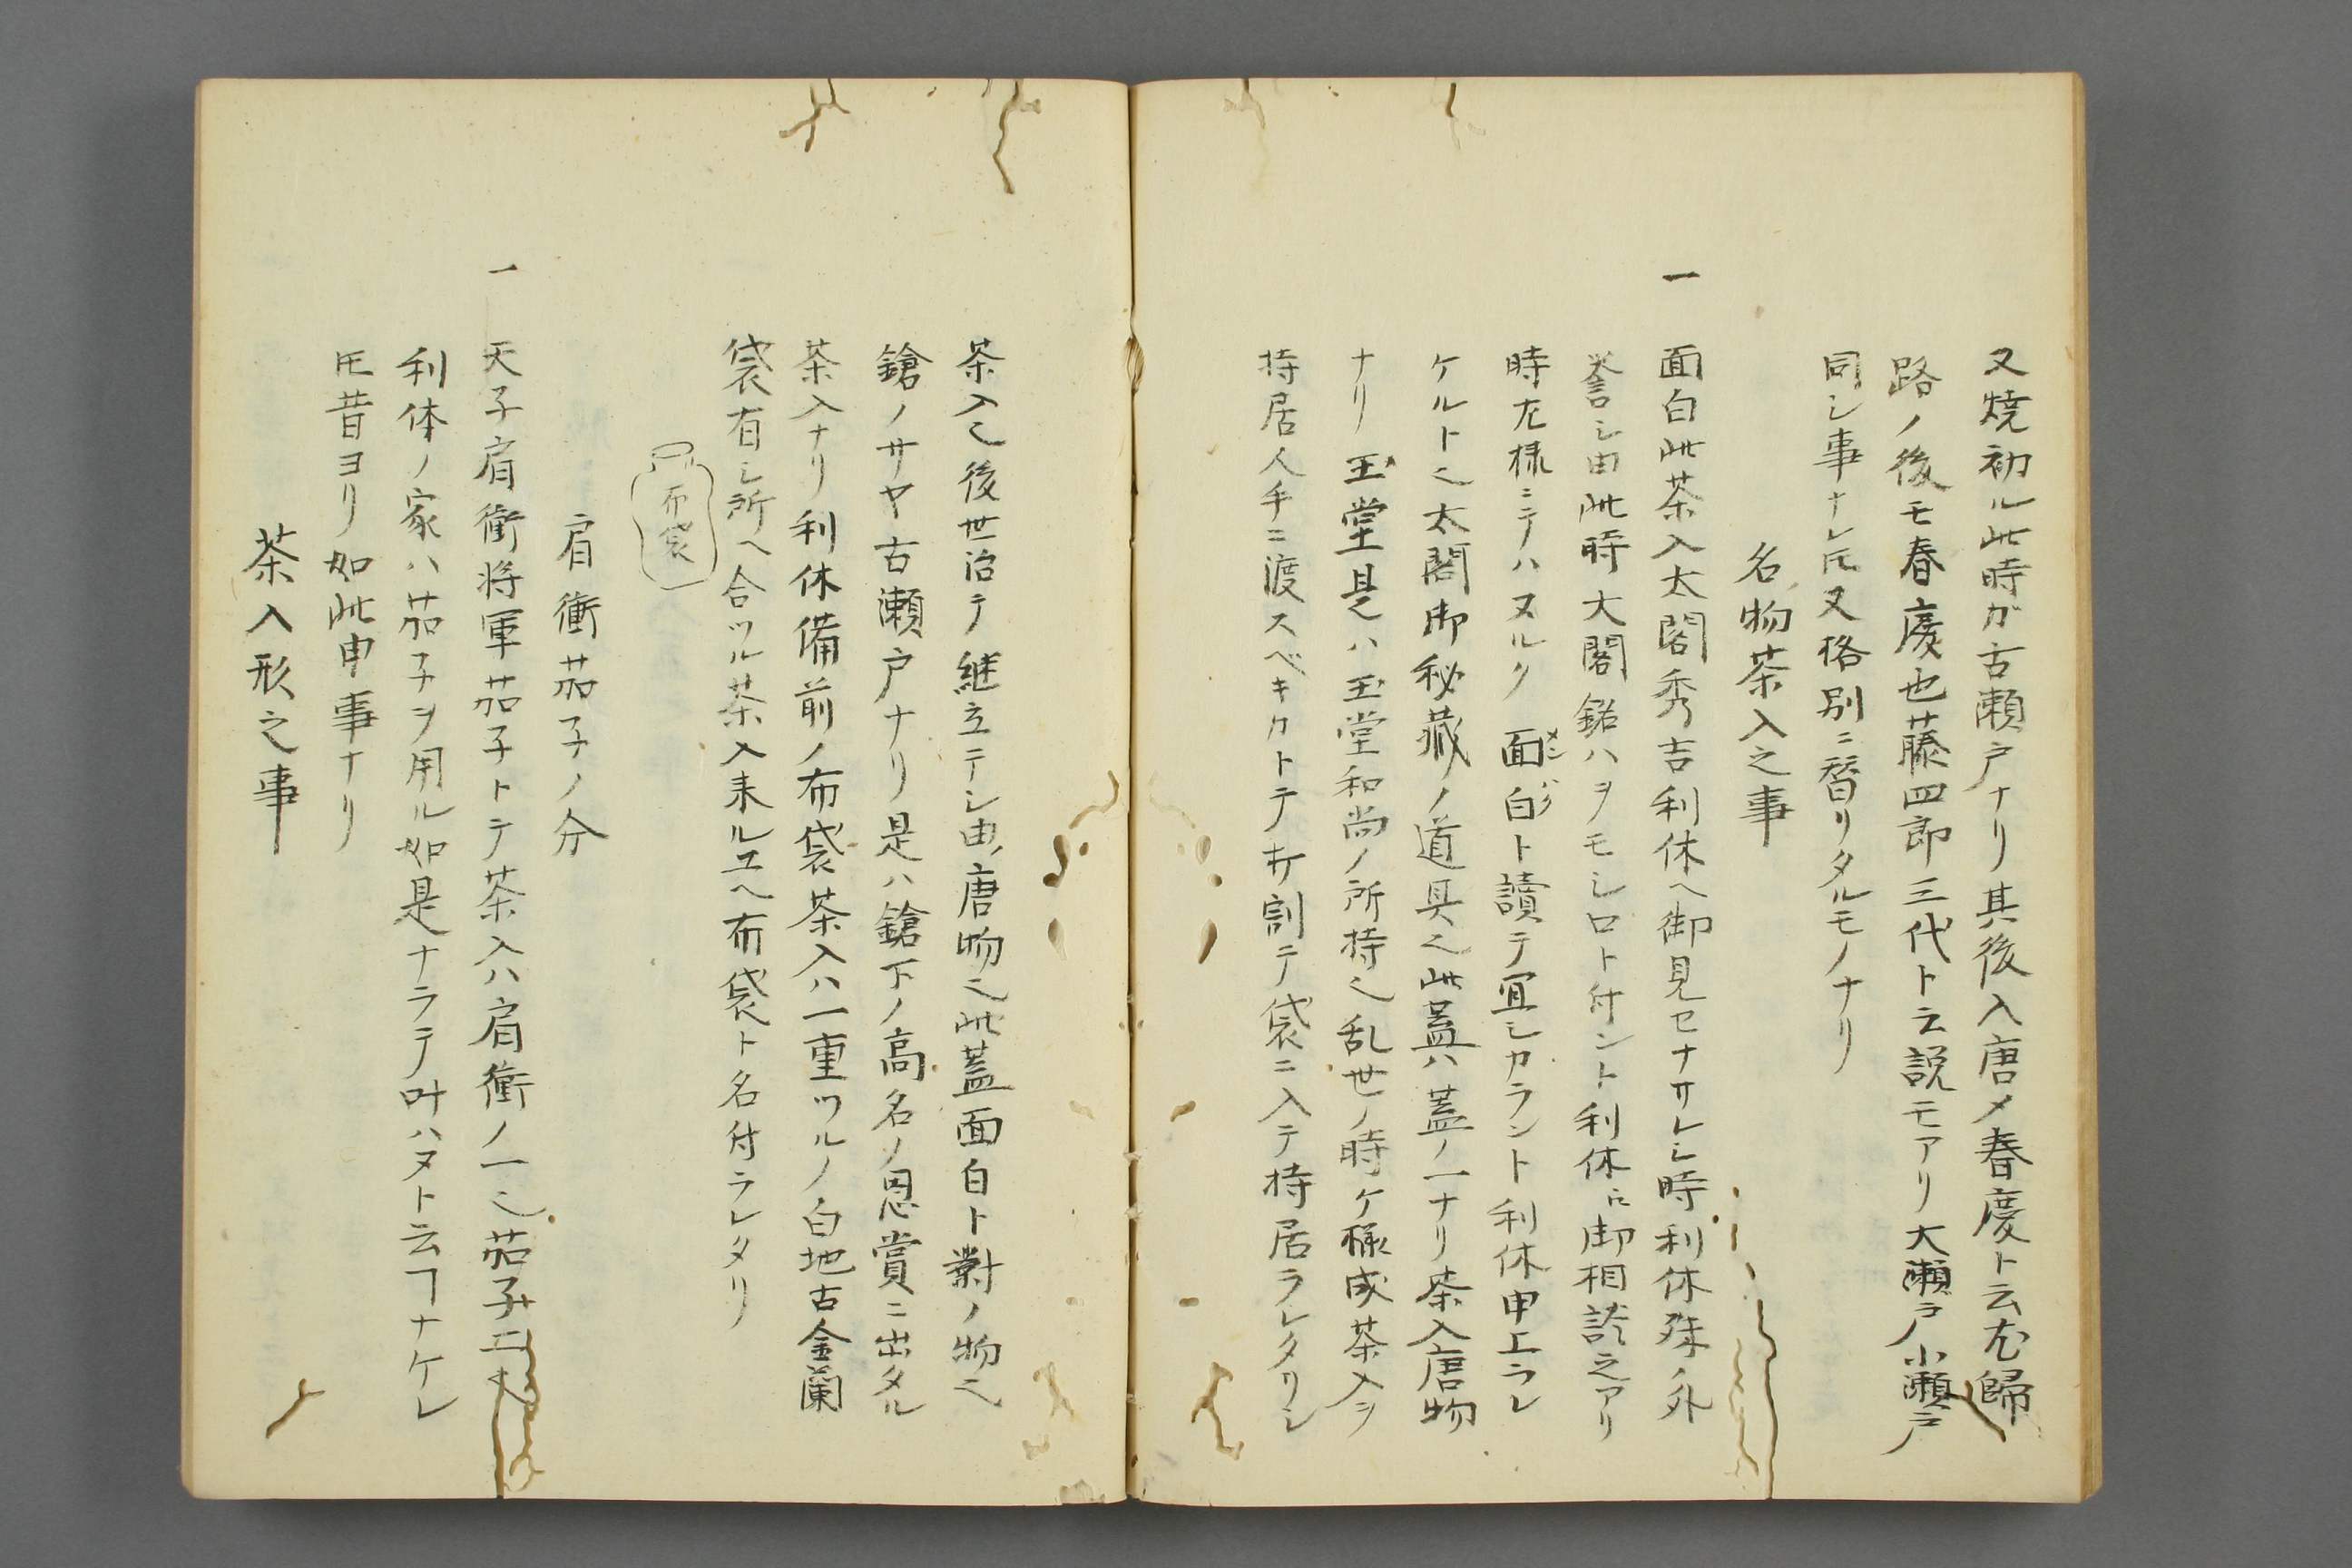 又焼初ル此時ガ古瀬戸ナリ其後入唐〆春慶ト云尤歸
路ノ後モ春慶也藤四郎三代ト云説モアリ大瀬戸小瀬戸
同シ事ナレ𪜈又格別ニ替リタルモノナリ
名物茶入之事
一 面白此茶入太閤秀吉利休ヘ御見セナサレシ時利休殊ノ外
誉シ由此時大閤銘ハヲモシロト付ント利休ニ御相談之アリ
時尤様ニテハヌルク面白ト讀テ宜シカラント利休申上ラレ
メンパク
ケルト也太閤御秘蔵ノ道具也此蓋ハ蓋ノ一ナリ茶入唐物
ナリ玉堂是ハ玉堂和尚ノ所持也乱世ノ時ケ様成茶入ヲ
持居人手ニ渡スベキカトテ打割テ袋ニ入テ持居ラレタリシ
茶入也後世治テ継立テシ由唐物也此蓋面白ト對ノ物也
鎗ノサヤ古瀬戸ナリ是ハ鎗下ノ高名ノ恩賞ニ出タル
茶入ナリ利休備前ノ布袋茶入ハ一重ツルノ白地古金蘭
袋有シ所ヘ合ツル茶入来ルユヘ布袋ト名付ラレタリ
布袋
肩衝茄子ノ分
一 天子肩衝将軍茄子トテ茶入ハ肩衝ノ一也茄子二也
利休ノ家ハ茄子ヲ用ル如是ナラテ叶ハヌト云ヿナケレ
𪜈昔ヨリ如此申事ナリ
茶入形之事